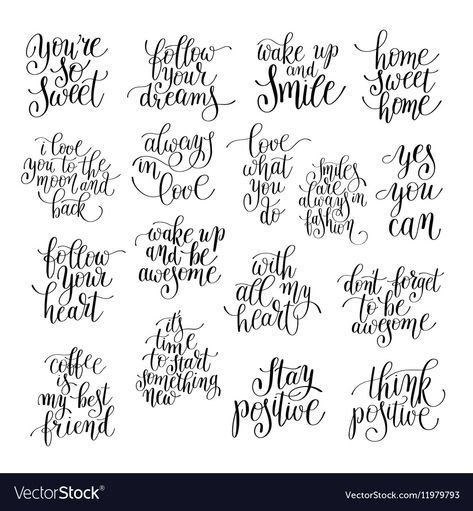 you're
so
sweet
follow
your
dreams
wake up
and
smile
home
sweet
home
i love
you to the
moon and
back
always
in
love
love
what
you
do
smiles
are
always in
fashion
yes
you
can
follow
your
heart
wake up
and be
awesome
with
all my
heart
don't forget
to be
awesome
coffee
is
my best
friend
it's
time
to start
something
new
stay
positive
think
positive
VectorStock®
VectorStock.com/11979793